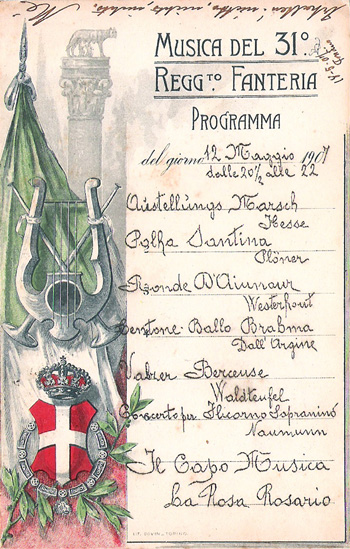 MUSICA DEL 31°
REGG.TO FANTERIA
PROGRAMMA
del giorno 12 Maggio 1907
dalle 20½ alle 22
Austellungs Marsch
Hesse
Polka Santina
Plöner
Ronde D'Aimour
Westerhout
Centone-Ballo Brahma
Dall'Argine
Valzer Berceuse
Waldteufel
Concerto per Flicorno Sopranino
Naumann
Il Capo Musica
La Rosa Rosario